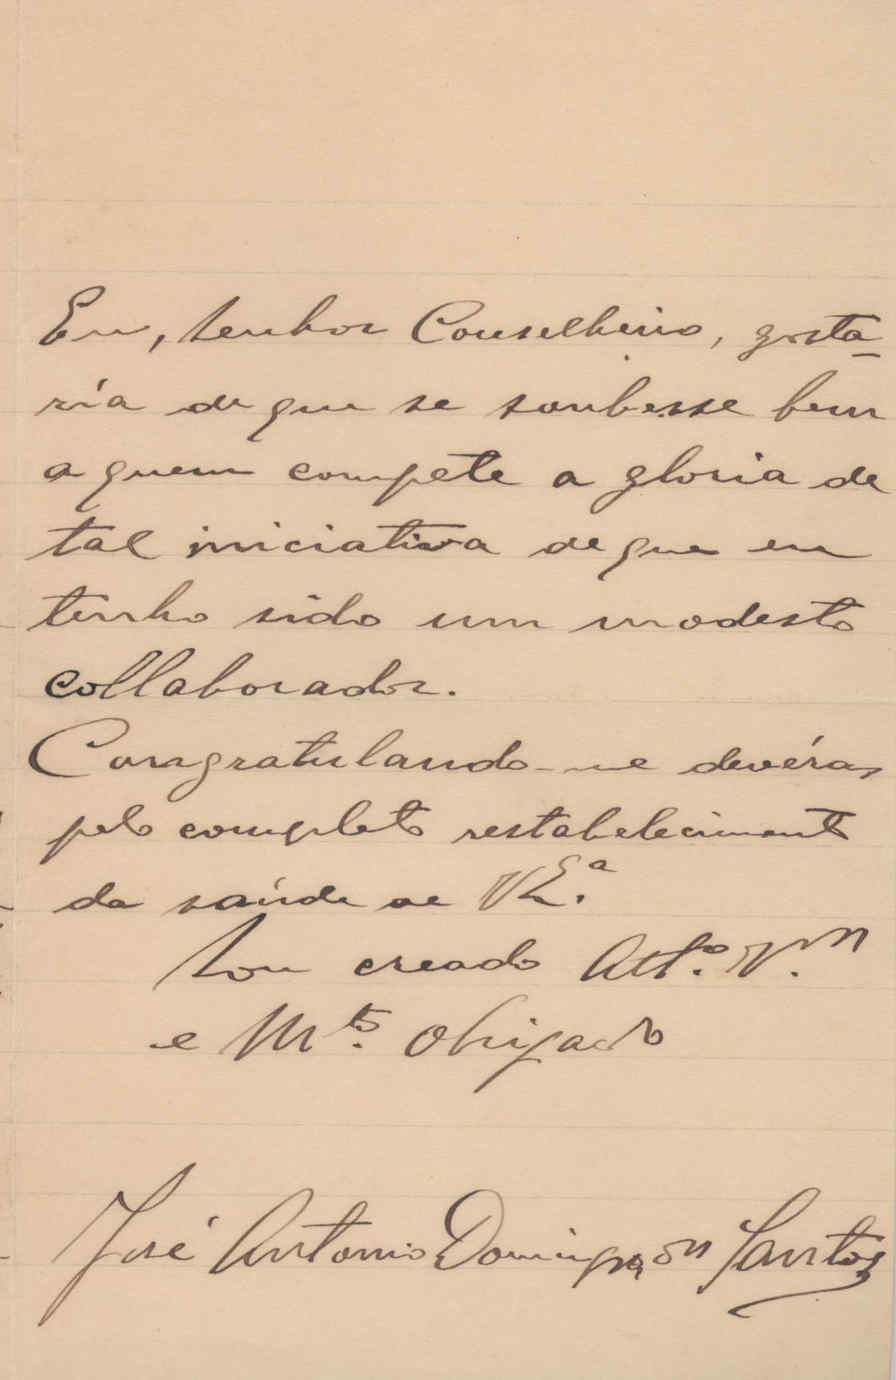 Eu, Senhor Conselheiro, gosta-
ria de que se soubesse bem
a quem compete a gloria de
tal iniciativa de que eu
tenho sido um modesto
collaborador.
Congratulando-me devéras
pelo completo restabelecimento
da saúde de V Ex.ª
Sou creado Att.º V.
e M.to Obrigado
José Antonio Domingos Santos